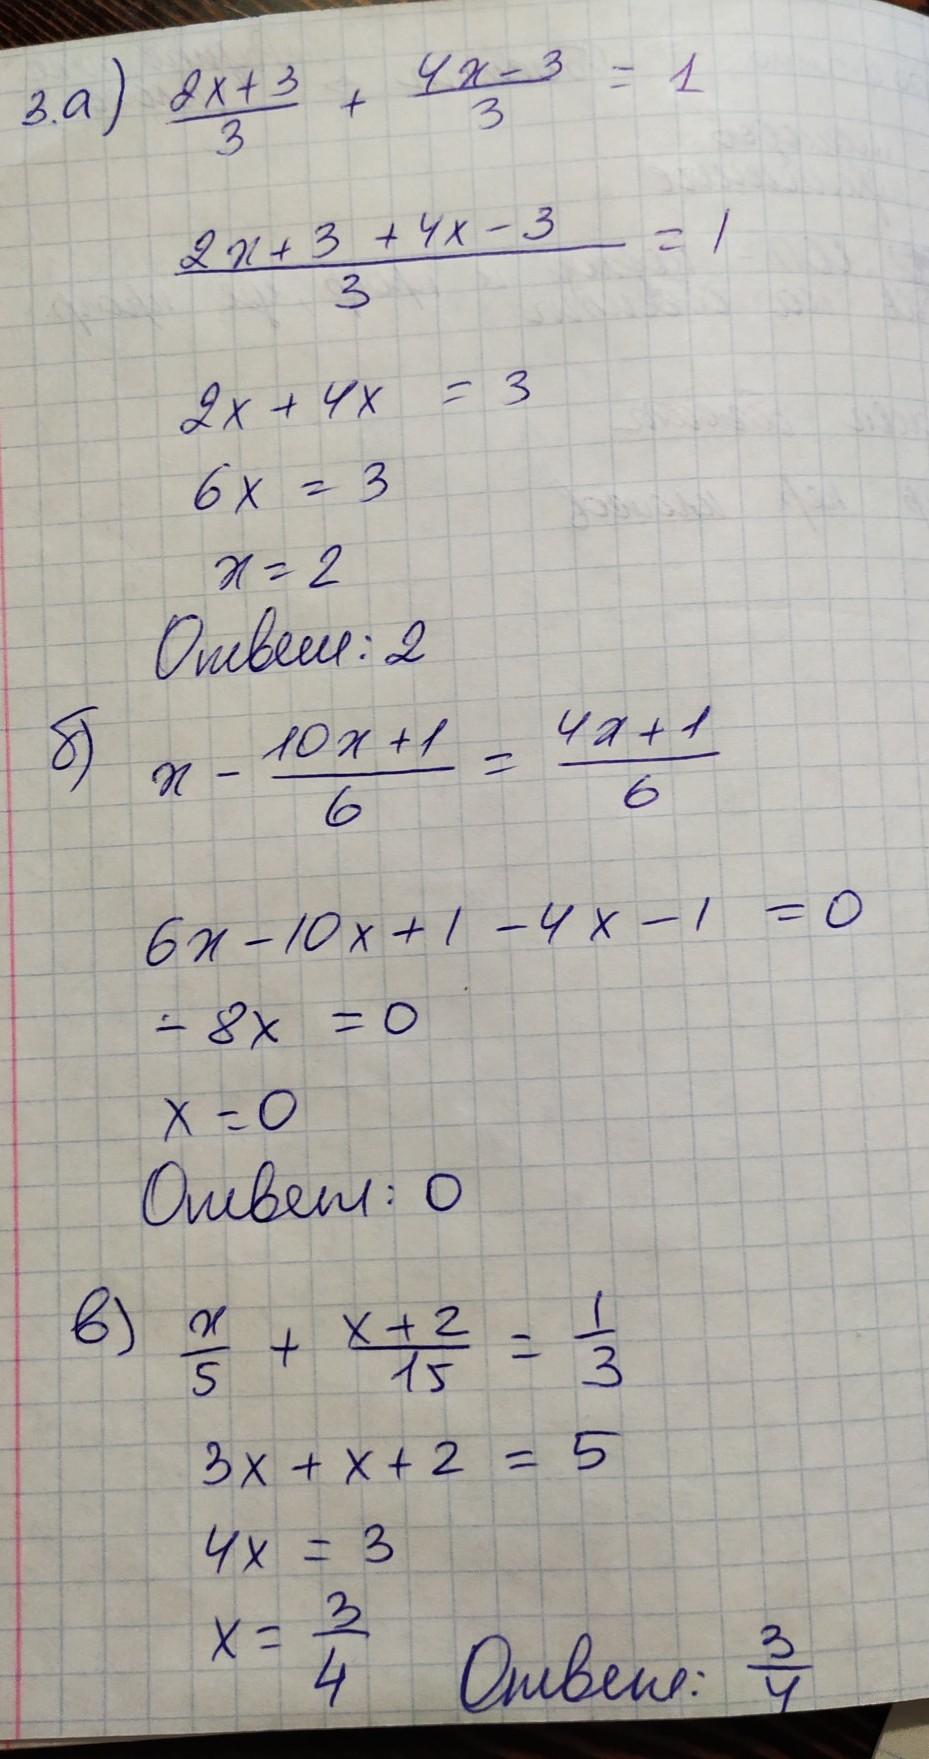 3.а) (2x+3)/3 + (4x-3)/3 = 1
(2x+3+4x-3)/3 = 1
2x+4x = 3
6x = 3
x = 2
Ответ: 2
б) x - (10x+1)/6 = (4x+1)/6
6x-10x+1-4x-1 = 0
-8x = 0
x = 0
Ответ: 0
в) x/5 + (x+2)/15 = 1/3
3x+x+2 = 5
4x = 3
x = 3/4 Ответ: 3/4